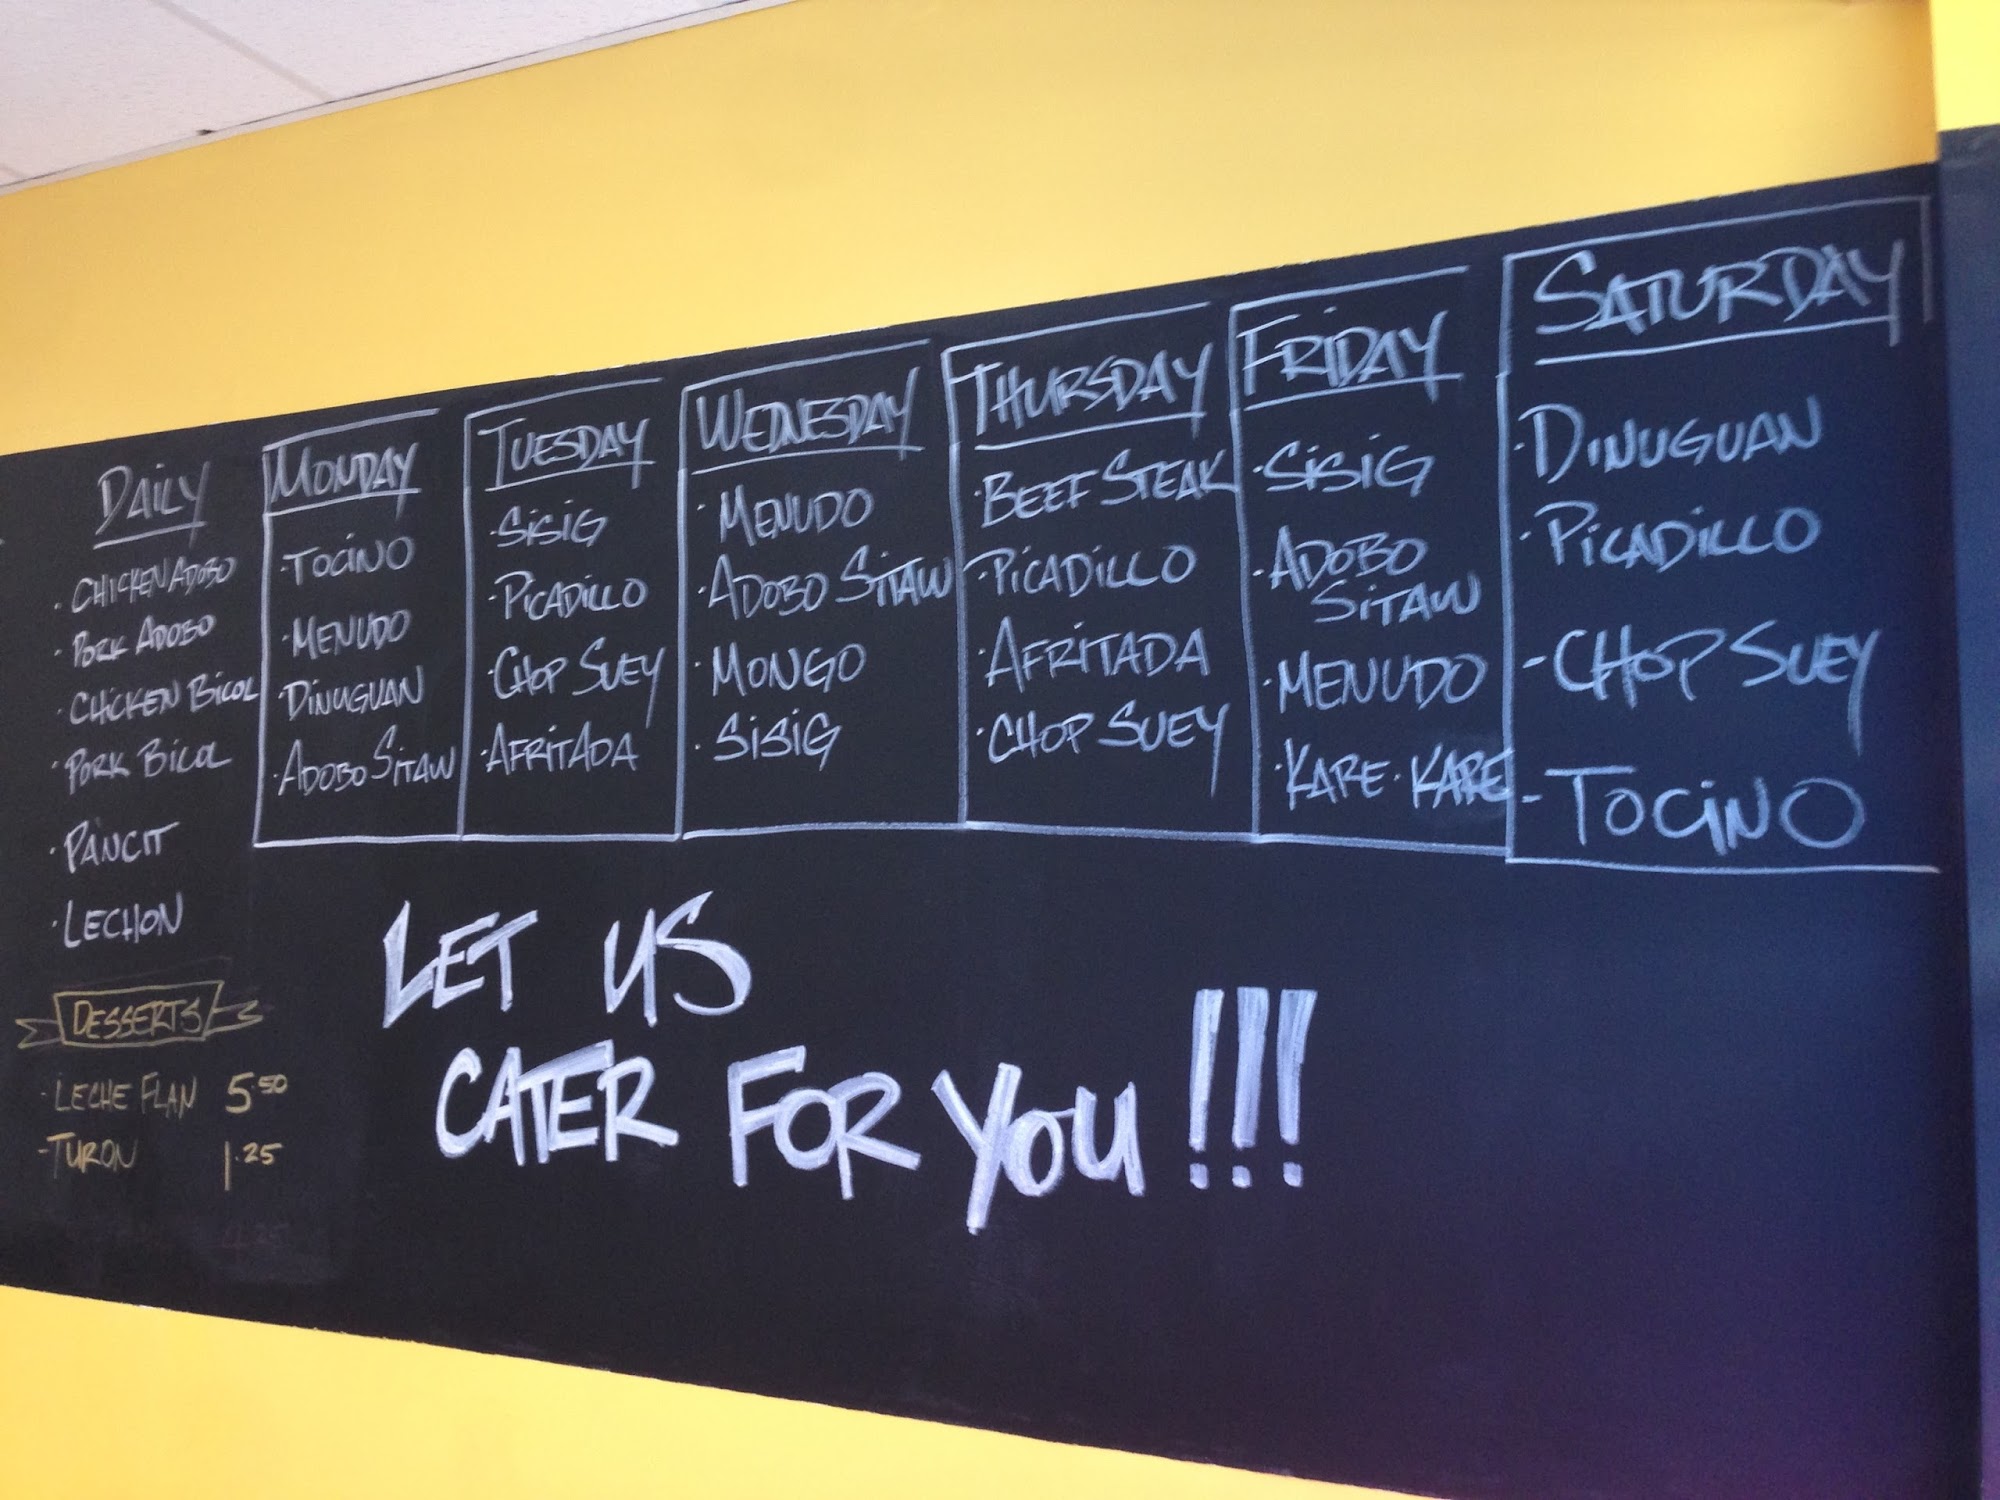 DAILY
· CHICKEN ADOBO
· PORK ADOBO
· CHICKEN BICOL
· PORK BICOL
· PANCIT
· LECHON
DESSERTS
· LECHE FLAN 5.50
- TURON 1.25
MONDAY
· TOCINO
· MENUDO
· DINUGUAN
· ADOBO SITAW
TUESDAY
· SISIG
· PICADILLO
· CHOP SUEY
· AFRITADA
WEDNESDAY
· MENUDO
· ADOBO SITAW
· MONGO
· SISIG
THURSDAY
· BEEF STEAK
· PICADILLO
· AFRITADA
· CHOP SUEY
FRIDAY
· SISIG
· ADOBO
SITAW
· MENUDO
· KARE · KARE
SATURDAY
· DINUGUAN
· PICADILLO
- CHOP SUEY
- TOCINO
LET US
CATER FOR YOU!!!